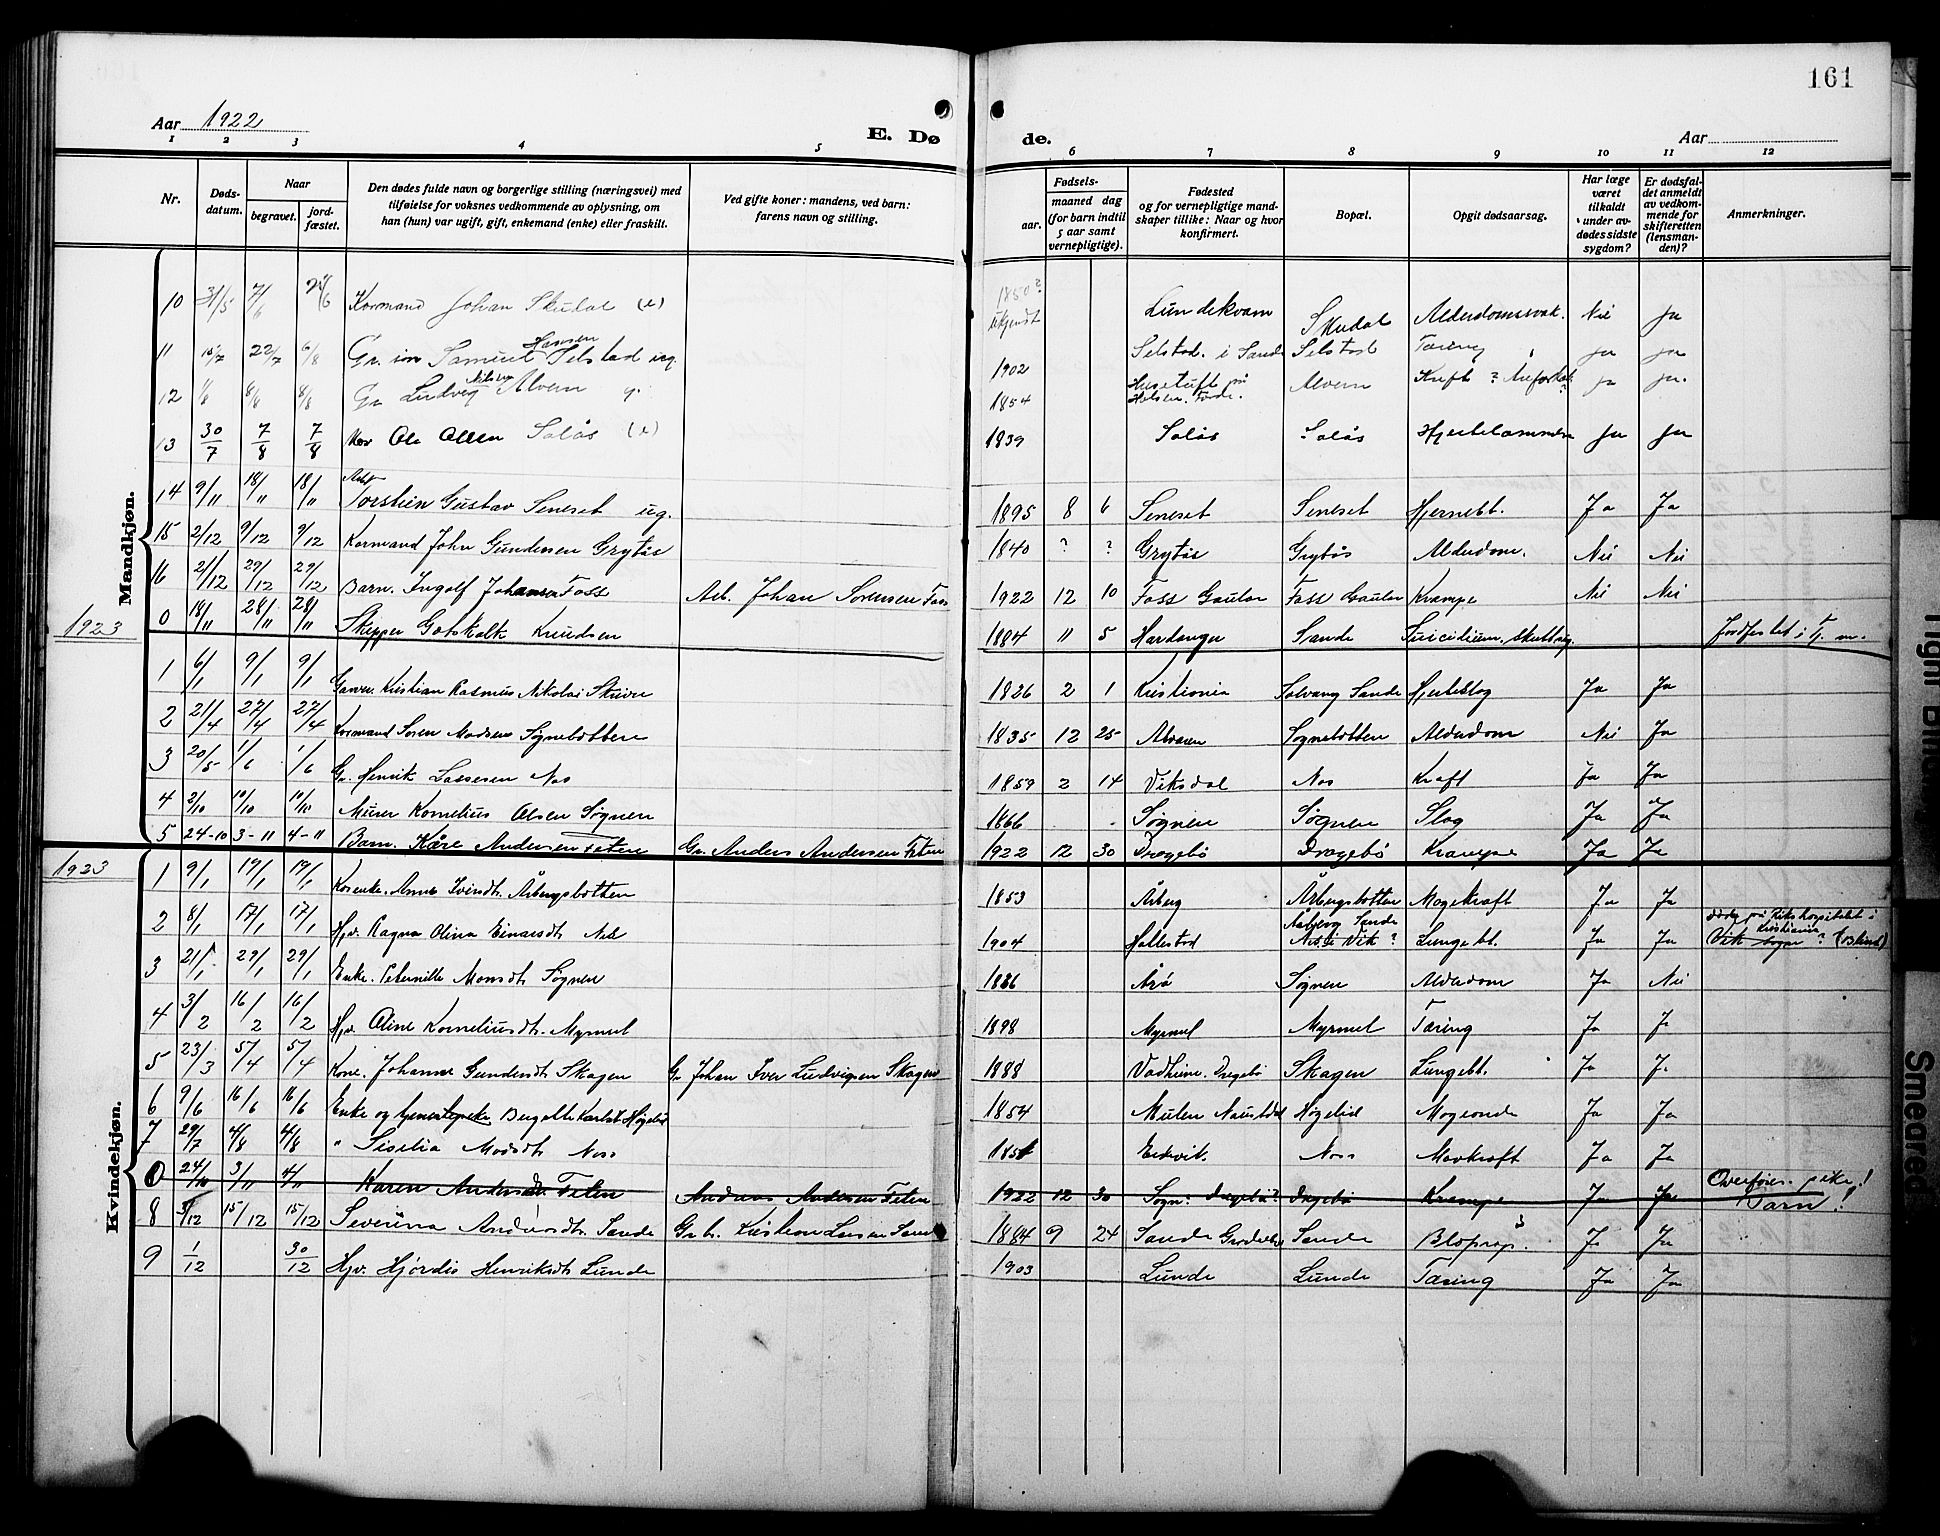 161
Aar 1922
E. Dø de.
Aar
1 2 3 4 5 6 7 8 9 10 11 12
Nr.
Døds-
datum.
Naar
begravet.
jord-
fæstet.
Den dødes fulde navn og borgerlige stilling (næringsvei) med
tilføielse for voksnes vedkommende av oplysning, om
han (hun) var ugift, gift, enkemand (enke) eller fraskilt.
Ved gifte koner: mandens, ved barn:
farens navn og stilling.
Fødsels-
aar.
maaned dag
(for barn indtil
5 aar samt
vernepligtige).
Fødested
og for vernepligtige mand-
skaper tillike: Naar og hvor
konfirmert.
Bopæl.
Opgit dødsaarsag.
Har læge
været
tilkaldt
under av-
dødes sidste
sygdom?
Er dødsfal-
det anmeldt
av vedkom-
mende for
skifteretten
(lensman-
den)?
Anmerkninger.
Mandkjøn.
10 31/5 7/6 Kaarmand Johan Skudal (e) 1850? ukjendt Lundekvam Skudal Alderdomssvak. Nei Ja
11 15/7 22/7 6/8 Gr. Samuel Hansen Selstad ug. 1902 Selstad i Sande Selstad Tæring ja ja
12 1/8 8/8 8/8 Gr Ludvig Nilsen Alvern g. 1854 Husetuft på Holsen. Førde. Alvern Kræft ? ja ja.
13 30/7 7/8 7/8 Kår Ole Olsen Solås (e) 1839 Solås Solås Hjertelammelse Ja Ja
14 9/11 18/11 18/11 Arb. Torstein Gustav Seneset ug. 1895 8 6 Seneset Seneset Hjernebt. Ja Ja
15 2/12 9/12 9/12 Kårmand John Gundersen Grytås 1840 ? ? Grytås Grytås Alderdom. Nei Nei
16 21/12 29/12 29/12 Barn. Ingolf Johansen Foss Arb. Johan Sørensen Foss 1922 12 10 Foss Gaular Foss Gaular Krampe Nei Nei
0 18/11 28/11 28/11 Skipper Gotskalk Knudsen 1884 11 5 Hardanger Sande Suicidium. Skutt sig. Jordfestet i
1923
1 6/1 9/1 9/1 Garver. Kristian Rasmus Nikolai Skeive 1826 2 1 Kristiania Solvang Sande Hjerteslag Ja Ja
2 21/4 27/4 27/4 Kårmand Søren Madsen Sognebotten 1835 12 25 Alværen Sognebotten Alderdom Nei Ja
3 20/5 1/6 1/6 Gr. Henrik Lassesen Nos 1859 2 14 Viksdal Nos Kraft Ja Ja
4 2/10 10/10 10/10 Murer Kornelius Olsen Søgnen 1866 Søgnen Søgnen Slag Ja Ja
5 24-10 3-11 4-11 Barn. Kåre Andersen Feten Gr. Anders Andersen Feten 1922 12 30 Dragebø Dragebø Krampe Ja Ja
1923
Kvindekjøn.
1 9/1 19/1 19/1 Kårenke. Anne Iversdt. Årbergsbotten 1853 Årberg Årbergsbotten Magekraft Ja Ja
2 8/1 17/1 17/1 Hjv. Ragna Olina Einarsdt. Nes 1904 Hallestad Aaberg Sande Nes i Vik ? Lungebt. Ja Ja døde på Rikshospitalet i Kristiania Vik Sogn ?
3 21/1 29/1 29/1 Enke. Peternille Monsdt. Søgnen 1836 Årø Søgnen Alderdom Ja Nei
4 3/2 16/2 16/2 Hjv. Oline Korneliusdt. Myrmel 1898 Myrmel Myrmel Tæring Ja J.
5 23/3 5/4 5/4 Kone. Johanne Gundersdt. Skagen Gr Johan Iver Ludvigsen Skagen 1888 Vadheim. Dregebø Skagen Lungebt. Ja J.
6 9/6 16/6 16/6 Enke og Bergette Karlsdt. Høgelid 1854 Mulen Naustdal Høgelid Mageonde Ja Ja
7 29/7 4/8 4/8 " Siselia Madsdt. Nos 1851 Eikvik. Nos Mavkraft Ja Ja
0 24/10 3/11 4/11 Karen Andersdtr. Feten Andreas Andersen Feten 1922 12 30 Sogn: Dregebø? Dregebø Krampe Ja Ja Overføres. pike! Barn!
8 5/12 15/12 15/12 Severina Andersdt. Sande Gr.br. Kristian Larsen Sande 1884 9 24 Sande Sande Blodprop. J. Ja
9 1/12 30/12 Hjv. Hjørdis Henriksdt. Lunde 1903 Lunde Lunde Tæring Ja Ja
Smeared